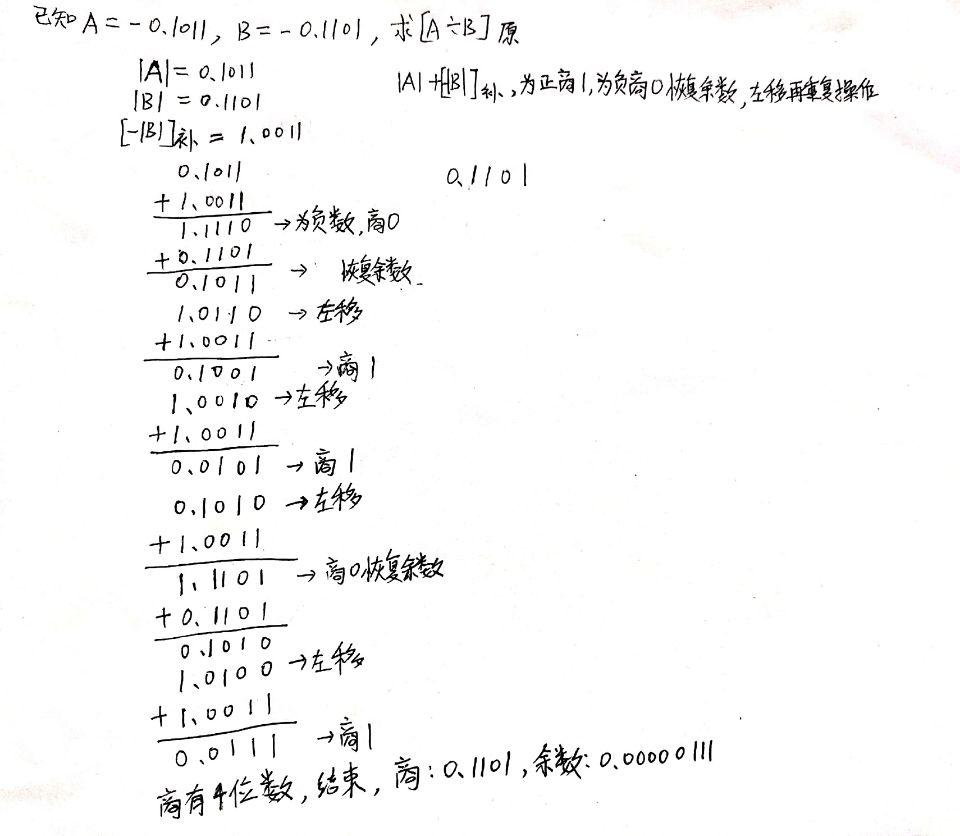 已知 A = -0.1011, B = -0.1101, 求[A÷B]原
|A| = 0.1011
|A|+[-|B|]补、,为正商1,为负商0恢复余数,左移再重复操作
|B| = 0.1101
[-|B|]补 = 1.0011
0.1011
0.1101
+1.0011
1.1110 →为负数,商0
+0.1101
0.1011 → 恢复余数
1.0110 →左移
+1.0011
0.1001 →商1
1.0010 →左移
+1.0011
0.0101 →商1
0.1010 →左移
+1.0011
1.1101 →商0恢复余数
+0.1101
0.1010
1.0100 →左移
+1.0011
0.0111 →商1
商有4位数,结束,商:0.1101,余数:0.00000111